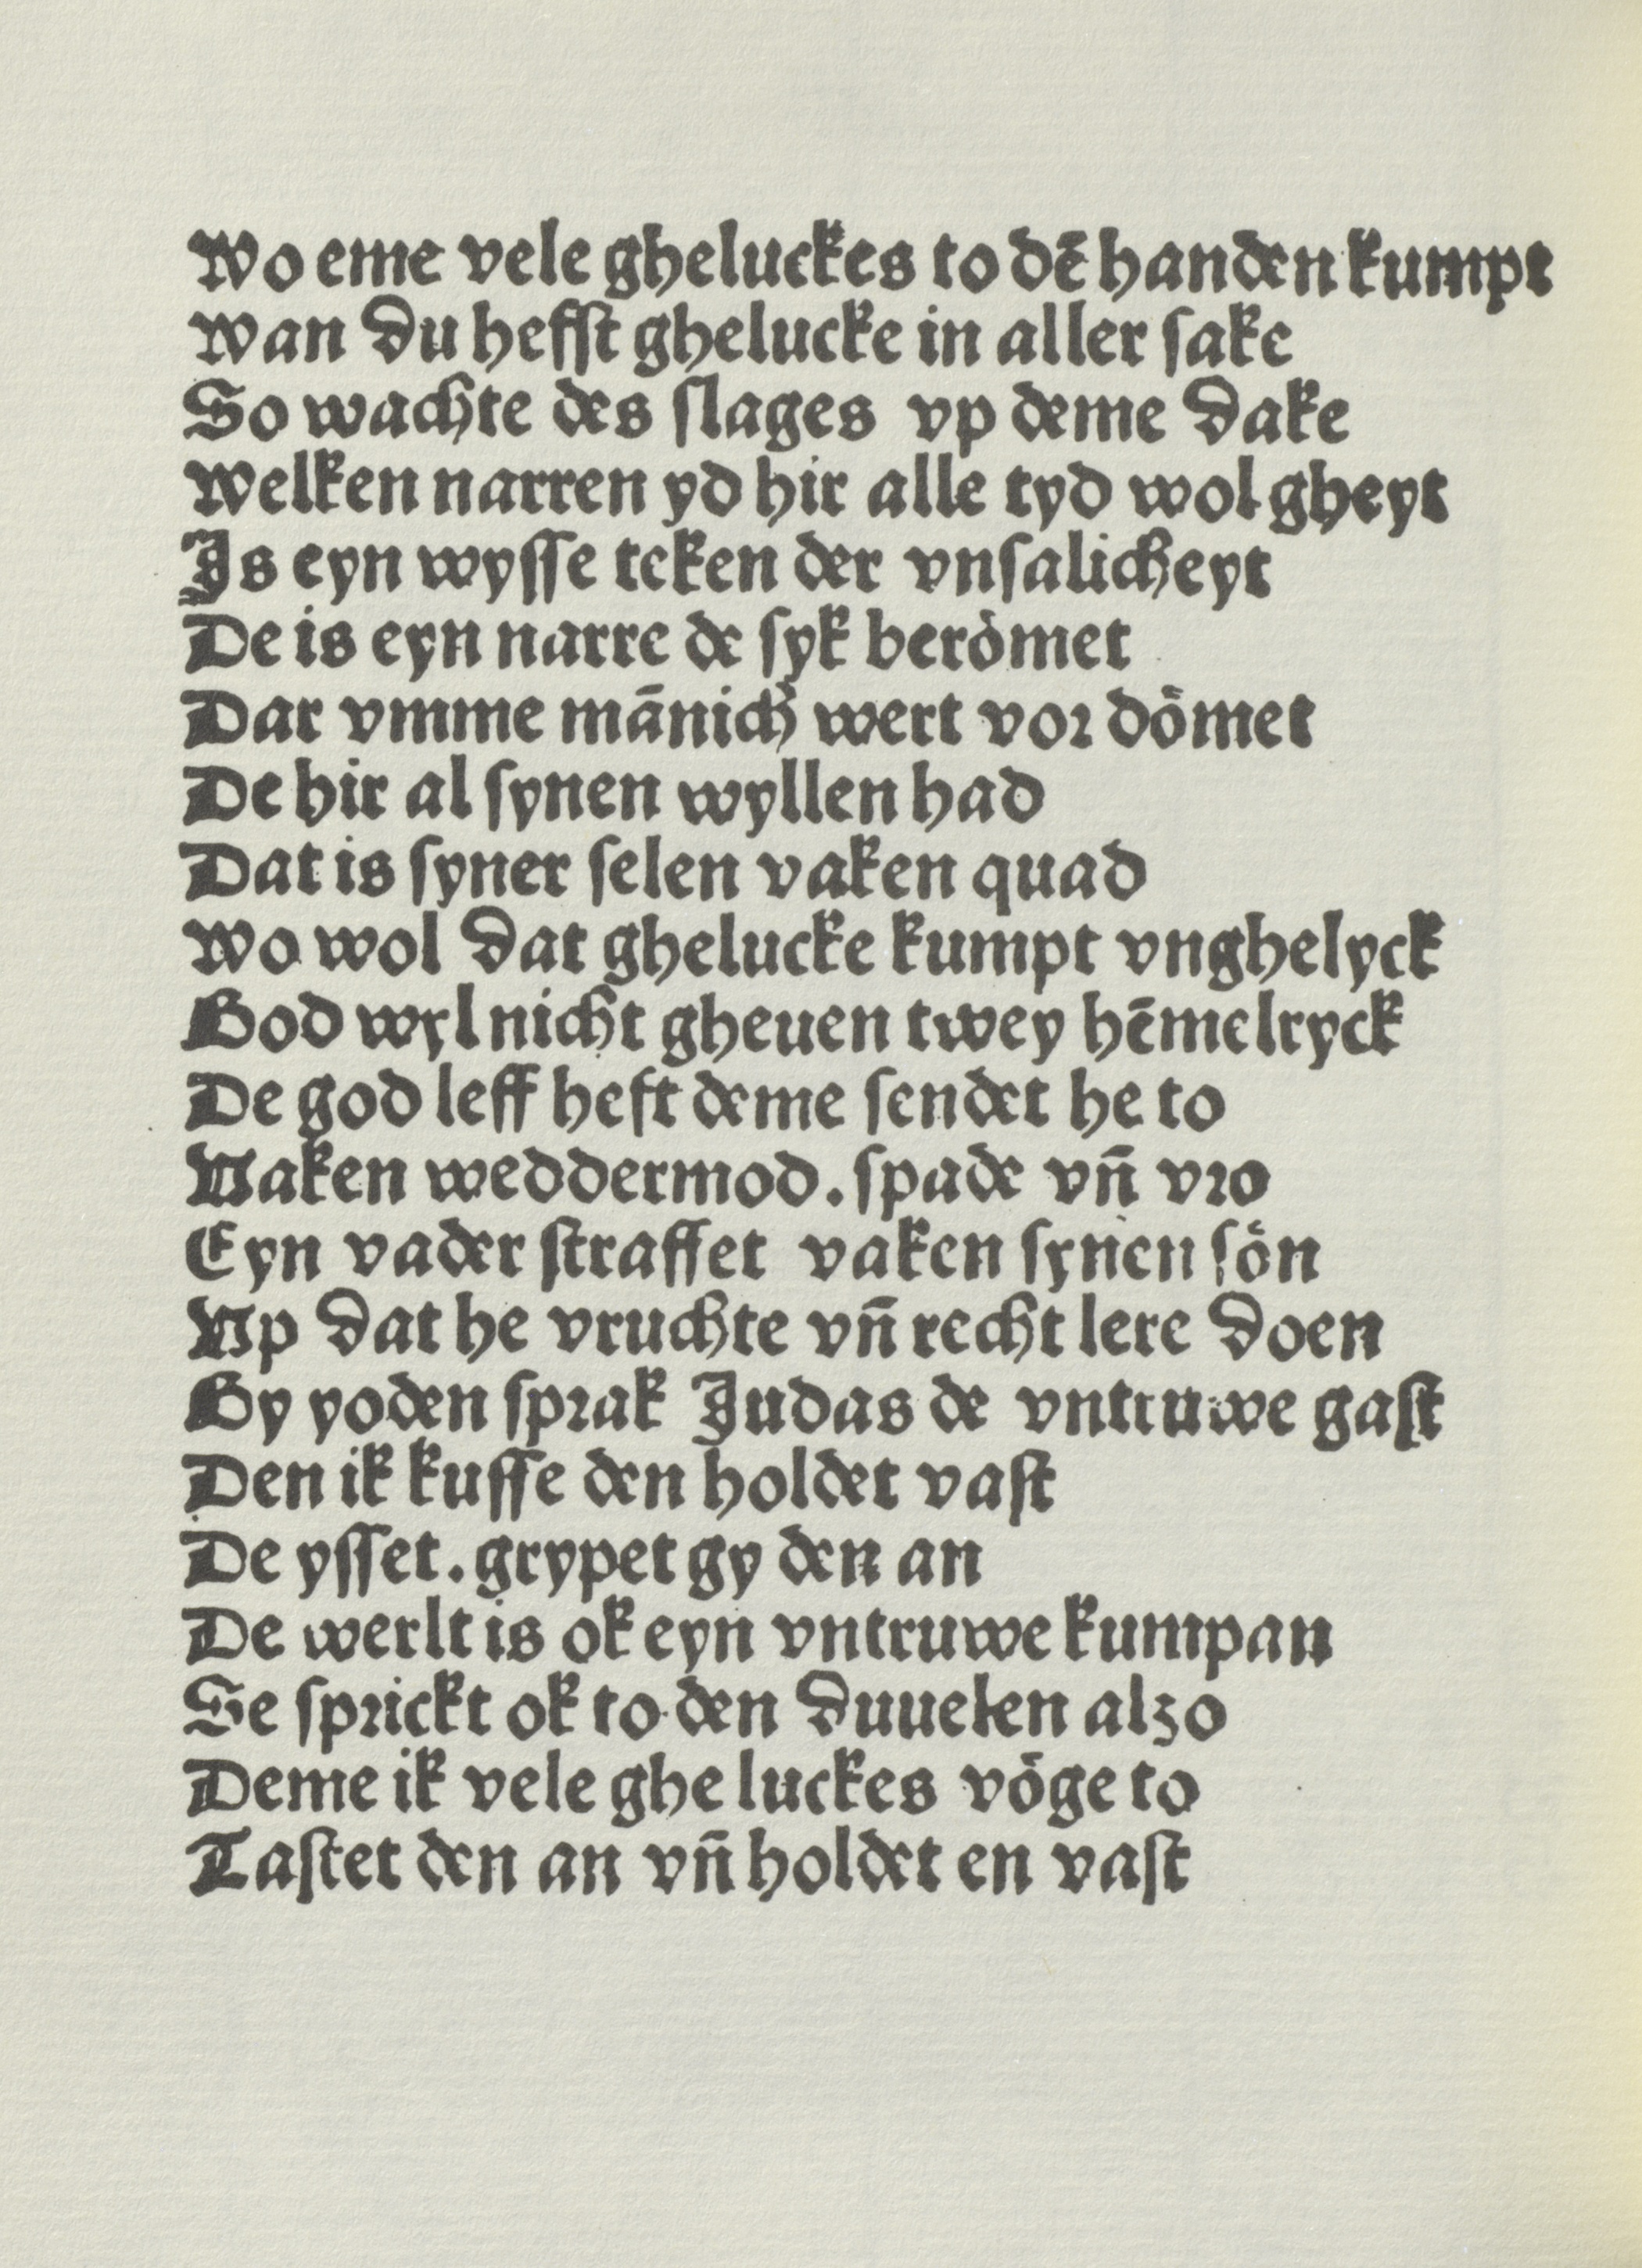 Wo eme vele gheluckes to dē handen kumpt
Wan du hefſt ghelucke in aller ſake
So wachte des ſlages vp deme dake
Welken narren yd hir alle tyd wol gheyt
Is eyn wyſſe teken der vnſalicheyt
De is eyn narre de ſyk berömet
Dar vmme mānich wert vor dömet
De hir al ſynen wyllen had
Dat is ſyner ſelen vaken quad
Wo wol dat ghelucke kumpt vnghelyck
God wyl nicht gheuen twey hēmelryck
De god leff heft deme ſendet he to
Vaken weddermod. ſpade vn̄ vro
Eyn vader ſtraffet vaken ſynen ſön
Vp dat he vruchte vn̄ recht lere doen
By yoden ſprak Judas de vntruwe gaſt
Den ik kuſſe den holdet vaſt
De yſſet. grypet gy den an
De werlt is ok eyn vntruwe kumpan
Se ſprickt ok to den duuelen alzo
Deme ik vele ghe luckes vöge to
Taſtet den an vn̄ holdet en vaſt